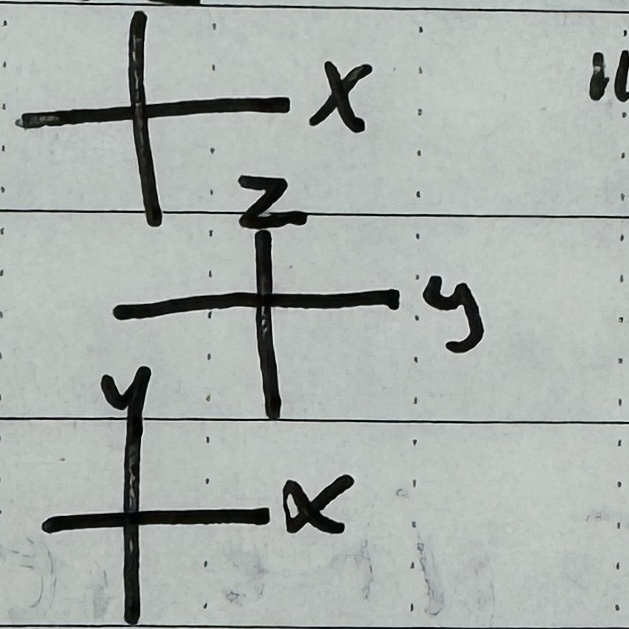 x
z
y
y
α